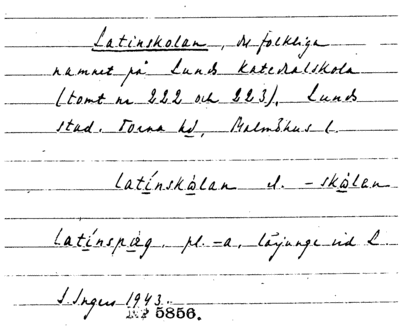 Latinskolan, det folkliga
namnet på Lunds Katedralskola
(tomt nr 222 och 223), Lunds
stad. Torna hd, Malmöhus l.
latínskålan el. -skålan
latínspåg, pl. -a, lärjunge vid L.
S. Ingers 1943.
5856.